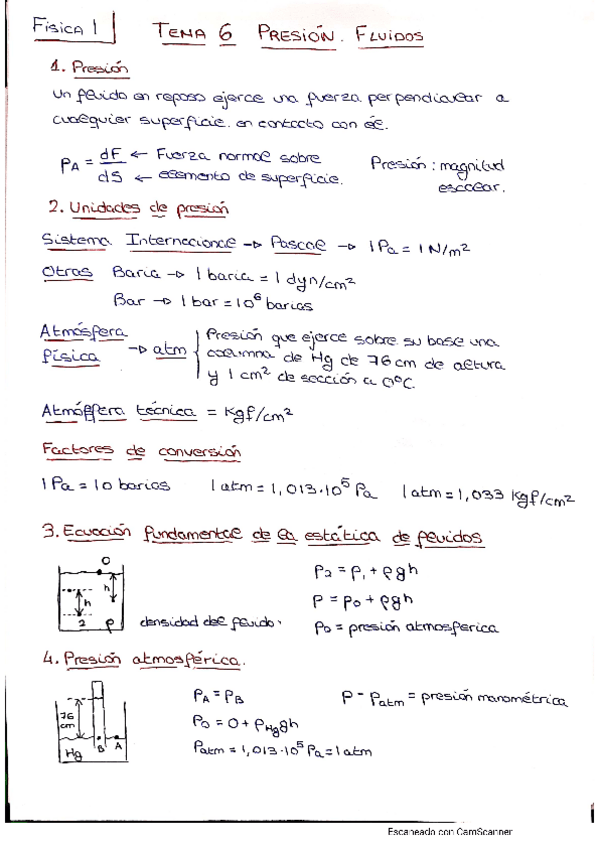 Física 1
TEMA 6 PRESIÓN. FLUIDOS
1. Presión
Un fluido en reposo ejerce una fuerza perpendicular a
cualquier superficie en contacto con él.
PA = dF/dS ← Fuerza normal sobre
← elemento de superficie.
Presión: magnitud
escalar.
2. Unidades de presión
Sistema Internacional → Pascal → 1Pa = 1N/m²
Otras Baria → 1 baria = 1 dyn/cm²
Bar → 1 bar = 10⁶ barias
Atmósfera
física → atm { Presión que ejerce sobre su base una
columna de Hg de 76 cm de altura
y 1 cm² de sección a 0ºC.
Atmósfera técnica = Kgf/cm²
Factores de conversión
1Pa = 10 barias 1 atm = 1,013·10⁵ Pa 1 atm = 1,033 Kgf/cm²
3. Ecuación fundamental de la estática de fluidos
0
h
h
2 ρ densidad del fluido.
P₂ = P₁ + ρgh
P = P₀ + ρgh
P₀ = presión atmosferica
4. Presión atmosférica.
76
cm
Hg B A
PA = PB
P₀ = 0 + ρHg gh
Patm = 1,013·10⁵ Pa = 1 atm
P - Patm = presión manométrica
Escaneado con CamScanner